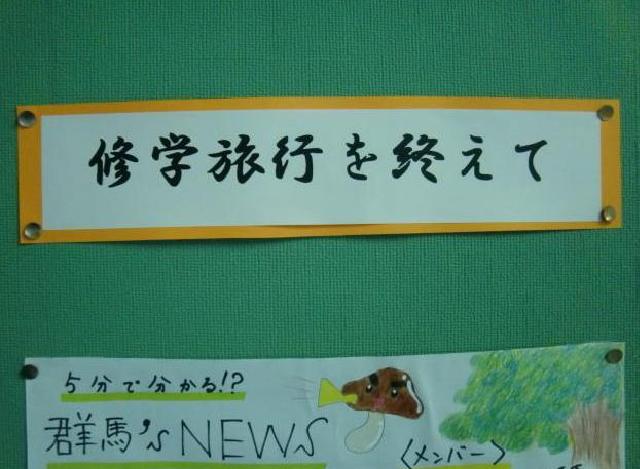 修学旅行を終えて
5分で分かる!?
群馬's NEWS
〈メンバー〉